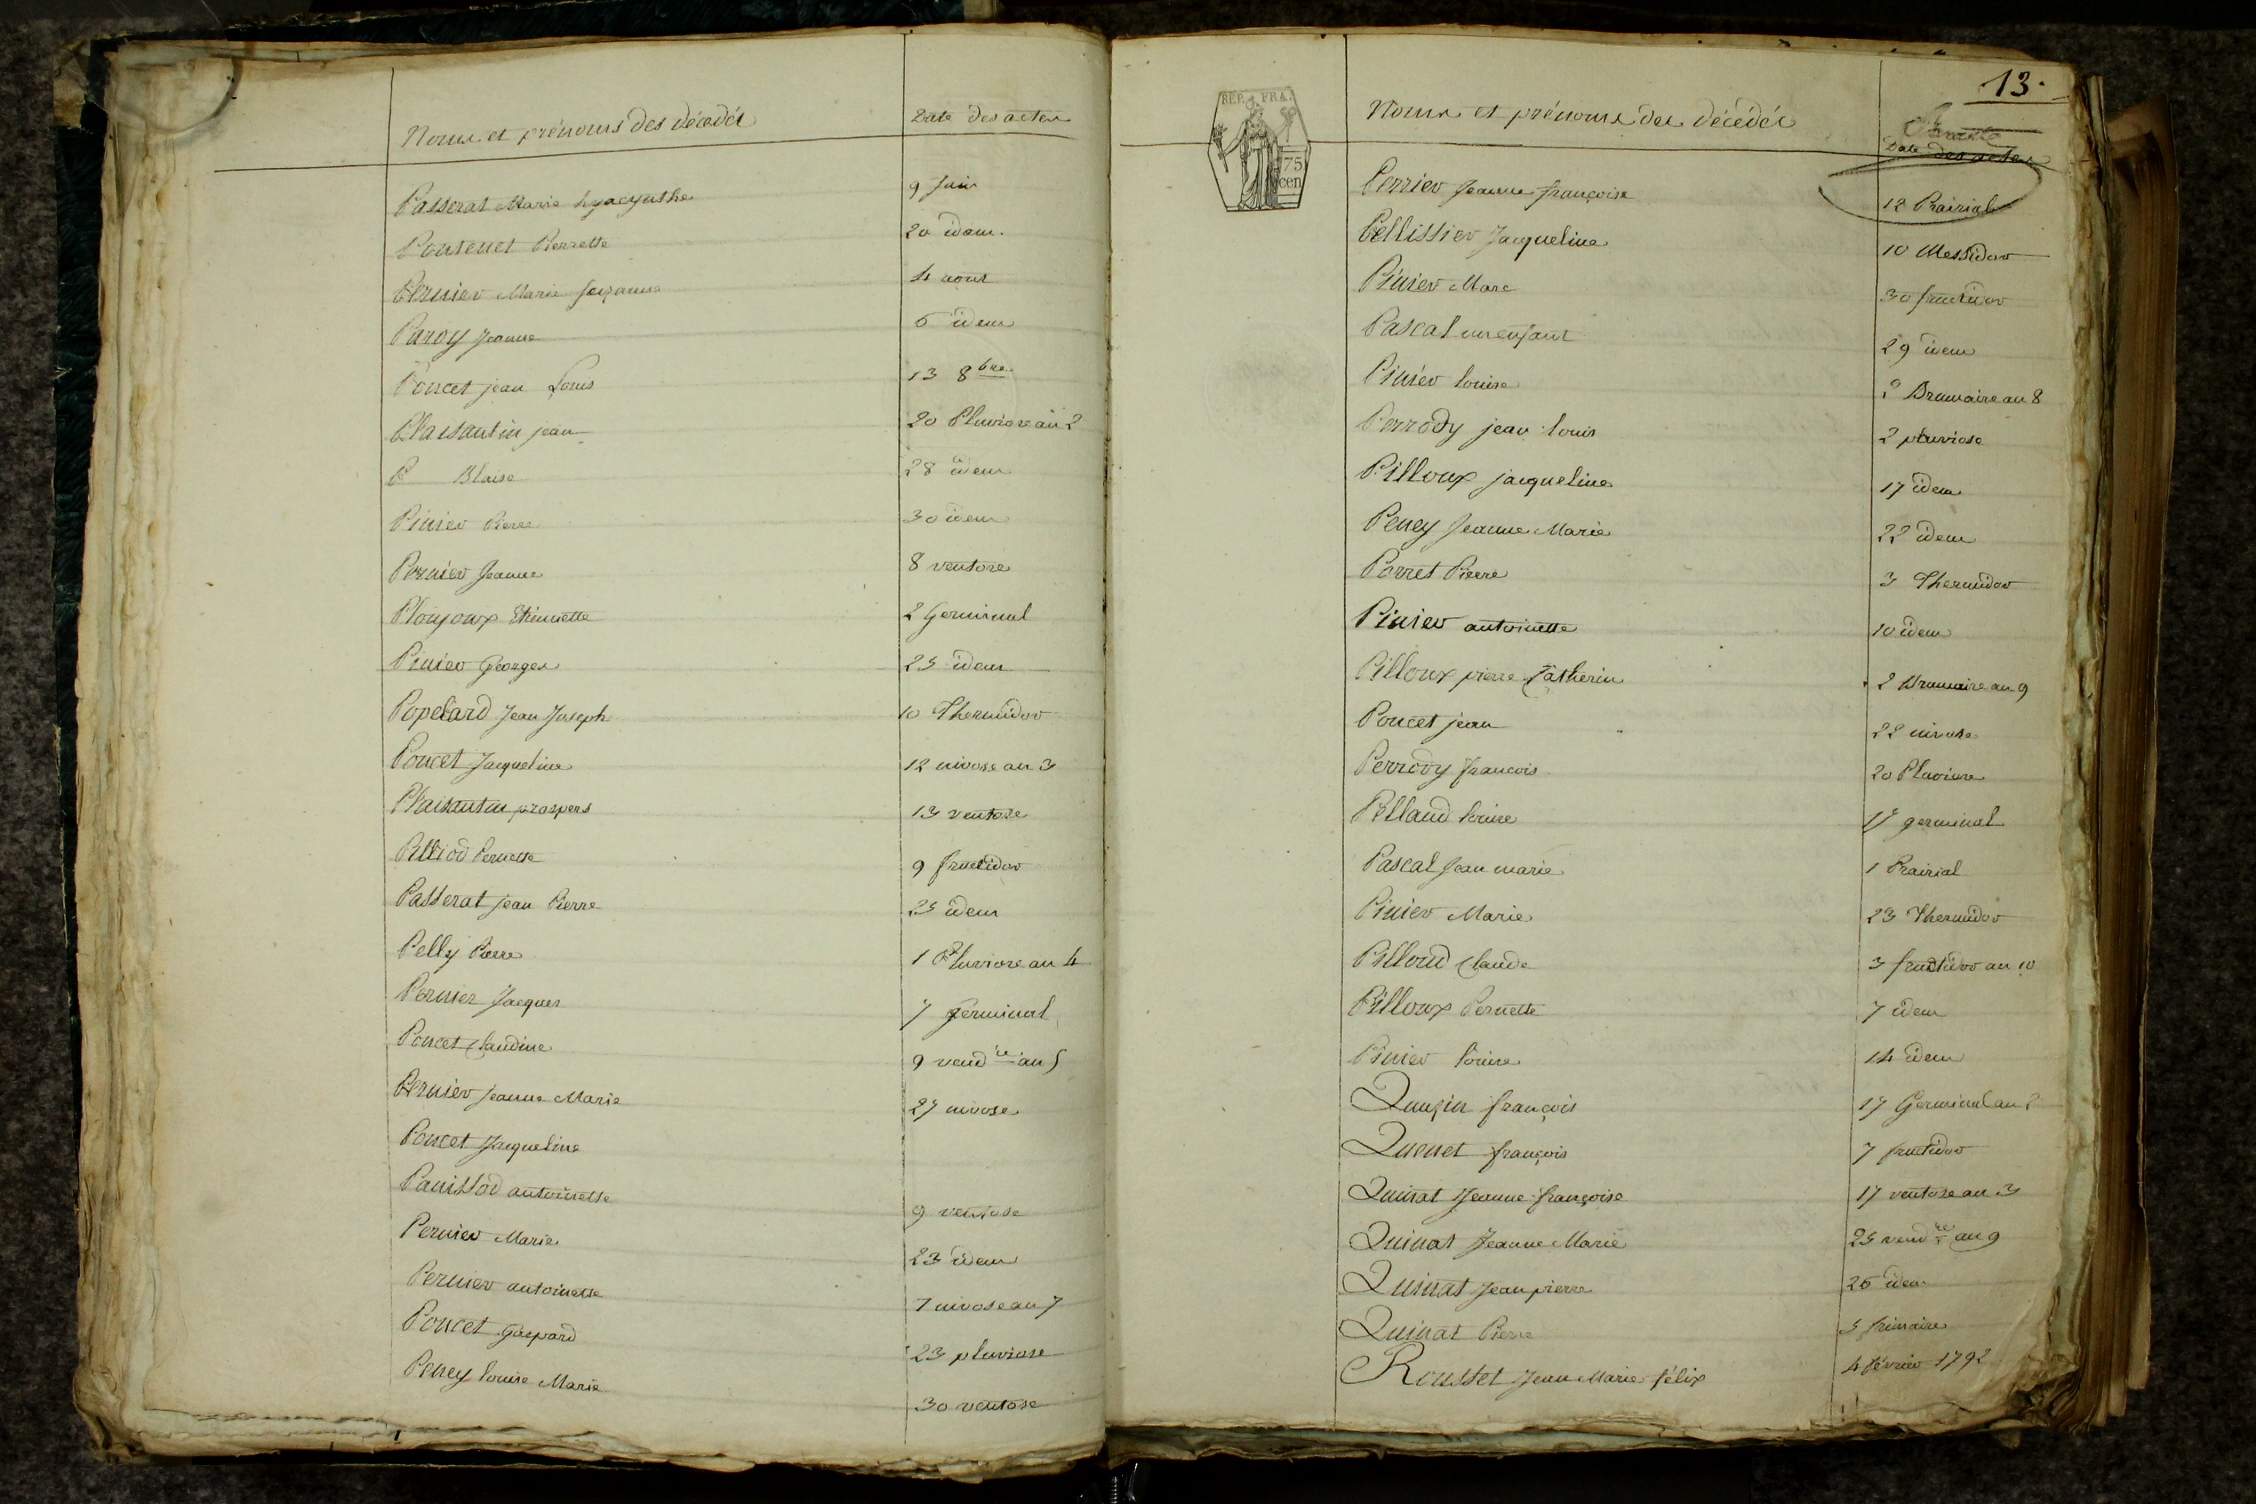 Noms et prénoms des décédés
Date des actes
Passerat Marie hyacynthe
9 Juin
Poutenet Pierrette
20 idem
Pernier Marie Suzanne
4 aout
Paroy Jeanne
6 idem
Poncet jean Louis
13 8bre
Plaisantin jean
20 Pluviose an 2
P Blaise
28 idem
Pinier Pierre
30 idem
Pernier Jeanne
8 ventose
Plonjoux Etiennette
2 Germinal
Pinier Georges
25 idem
Popelard Jean Joseph
10 Thermidor
Poncet Jacqueline
12 nivose an 3
Plaisantin prospers
13 ventose
Pilliod Pernette
9 fructidor
Passerat jean Pierre
25 idem
Pelly Pierre
1 Pluviose an 4
Pernier Jacques
7 Germinal
Poncet Claudine
9 vendre an 5
Pernier Jeanne Marie
27 nivose
Poncet Jacqueline
Panissod antoinette
9 ventose
Pernier Marie
23 idem
Pernier antoinette
7 nivose an 7
Poncet Gaspard
23 pluviose
Peney louise Marie
30 ventose
13.
REP. FRA.
75
cen
Noms et prénoms des décédés
Date des actes
Perrier Jeanne françoise
12 Prairial
Pellissier Jacqueline
10 Messidor
Pinier Marc
30 fructidor
Pascal un enfant
29 idem
Pinier louise
Brumaire an 8
Perrody jean louis
2 pluviose
Pilloux jacqueline
17 idem
Peney Jeanne Marie
22 idem
Porret Pierre
3 Thermidor
Pinier antoinette
10 idem
Pilloux pierre Catherin
2 Brumaire an 9
Poncet jean
22 nivose
Perrody francois
20 Pluviose
Pelland louise
17 germinal
Pascal Jean marie
1 Prairial
Pinier Marie
23 Thermidor
Pilloud Claude
3 fructidor an 10
Pilloux Pernette
7 idem
Pinier louise
14 idem
Quuzin françois
17 Germinal an 2
Quenet françois
7 fructidor
Quinat Jeanne françoise
17 ventose an 3
Quinat Jeanne Marie
25 vendre an 9
Quinat Jean pierre
26 idem
Quinat Pierre
5 frimaire
Rousset Jean Marie félix
4 février 1792